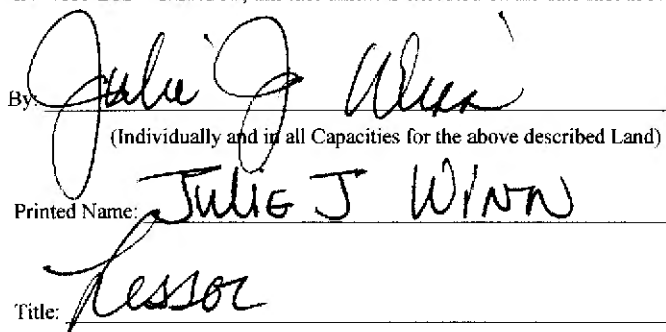 By: Julie J Winn
(Individually and in all Capacities for the above described Land)
Printed Name: JULIE J WINN
Title: Lessor